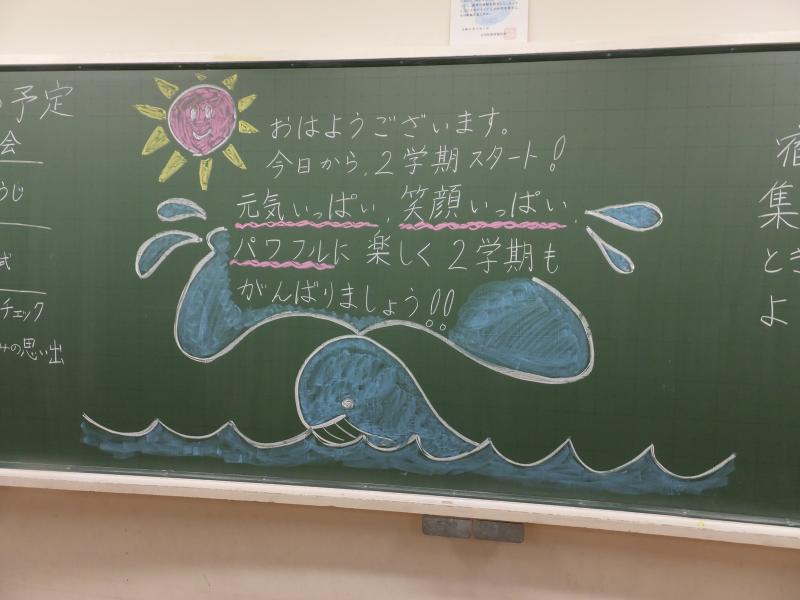 予定
会
うじ
式
チェック
みの思い出
おはようございます。
今日から、2学期スタート!
元気いっぱい、笑顔いっぱい、
パワフルに楽しく2学期も
がんばりましょう!!
集
とき
よ